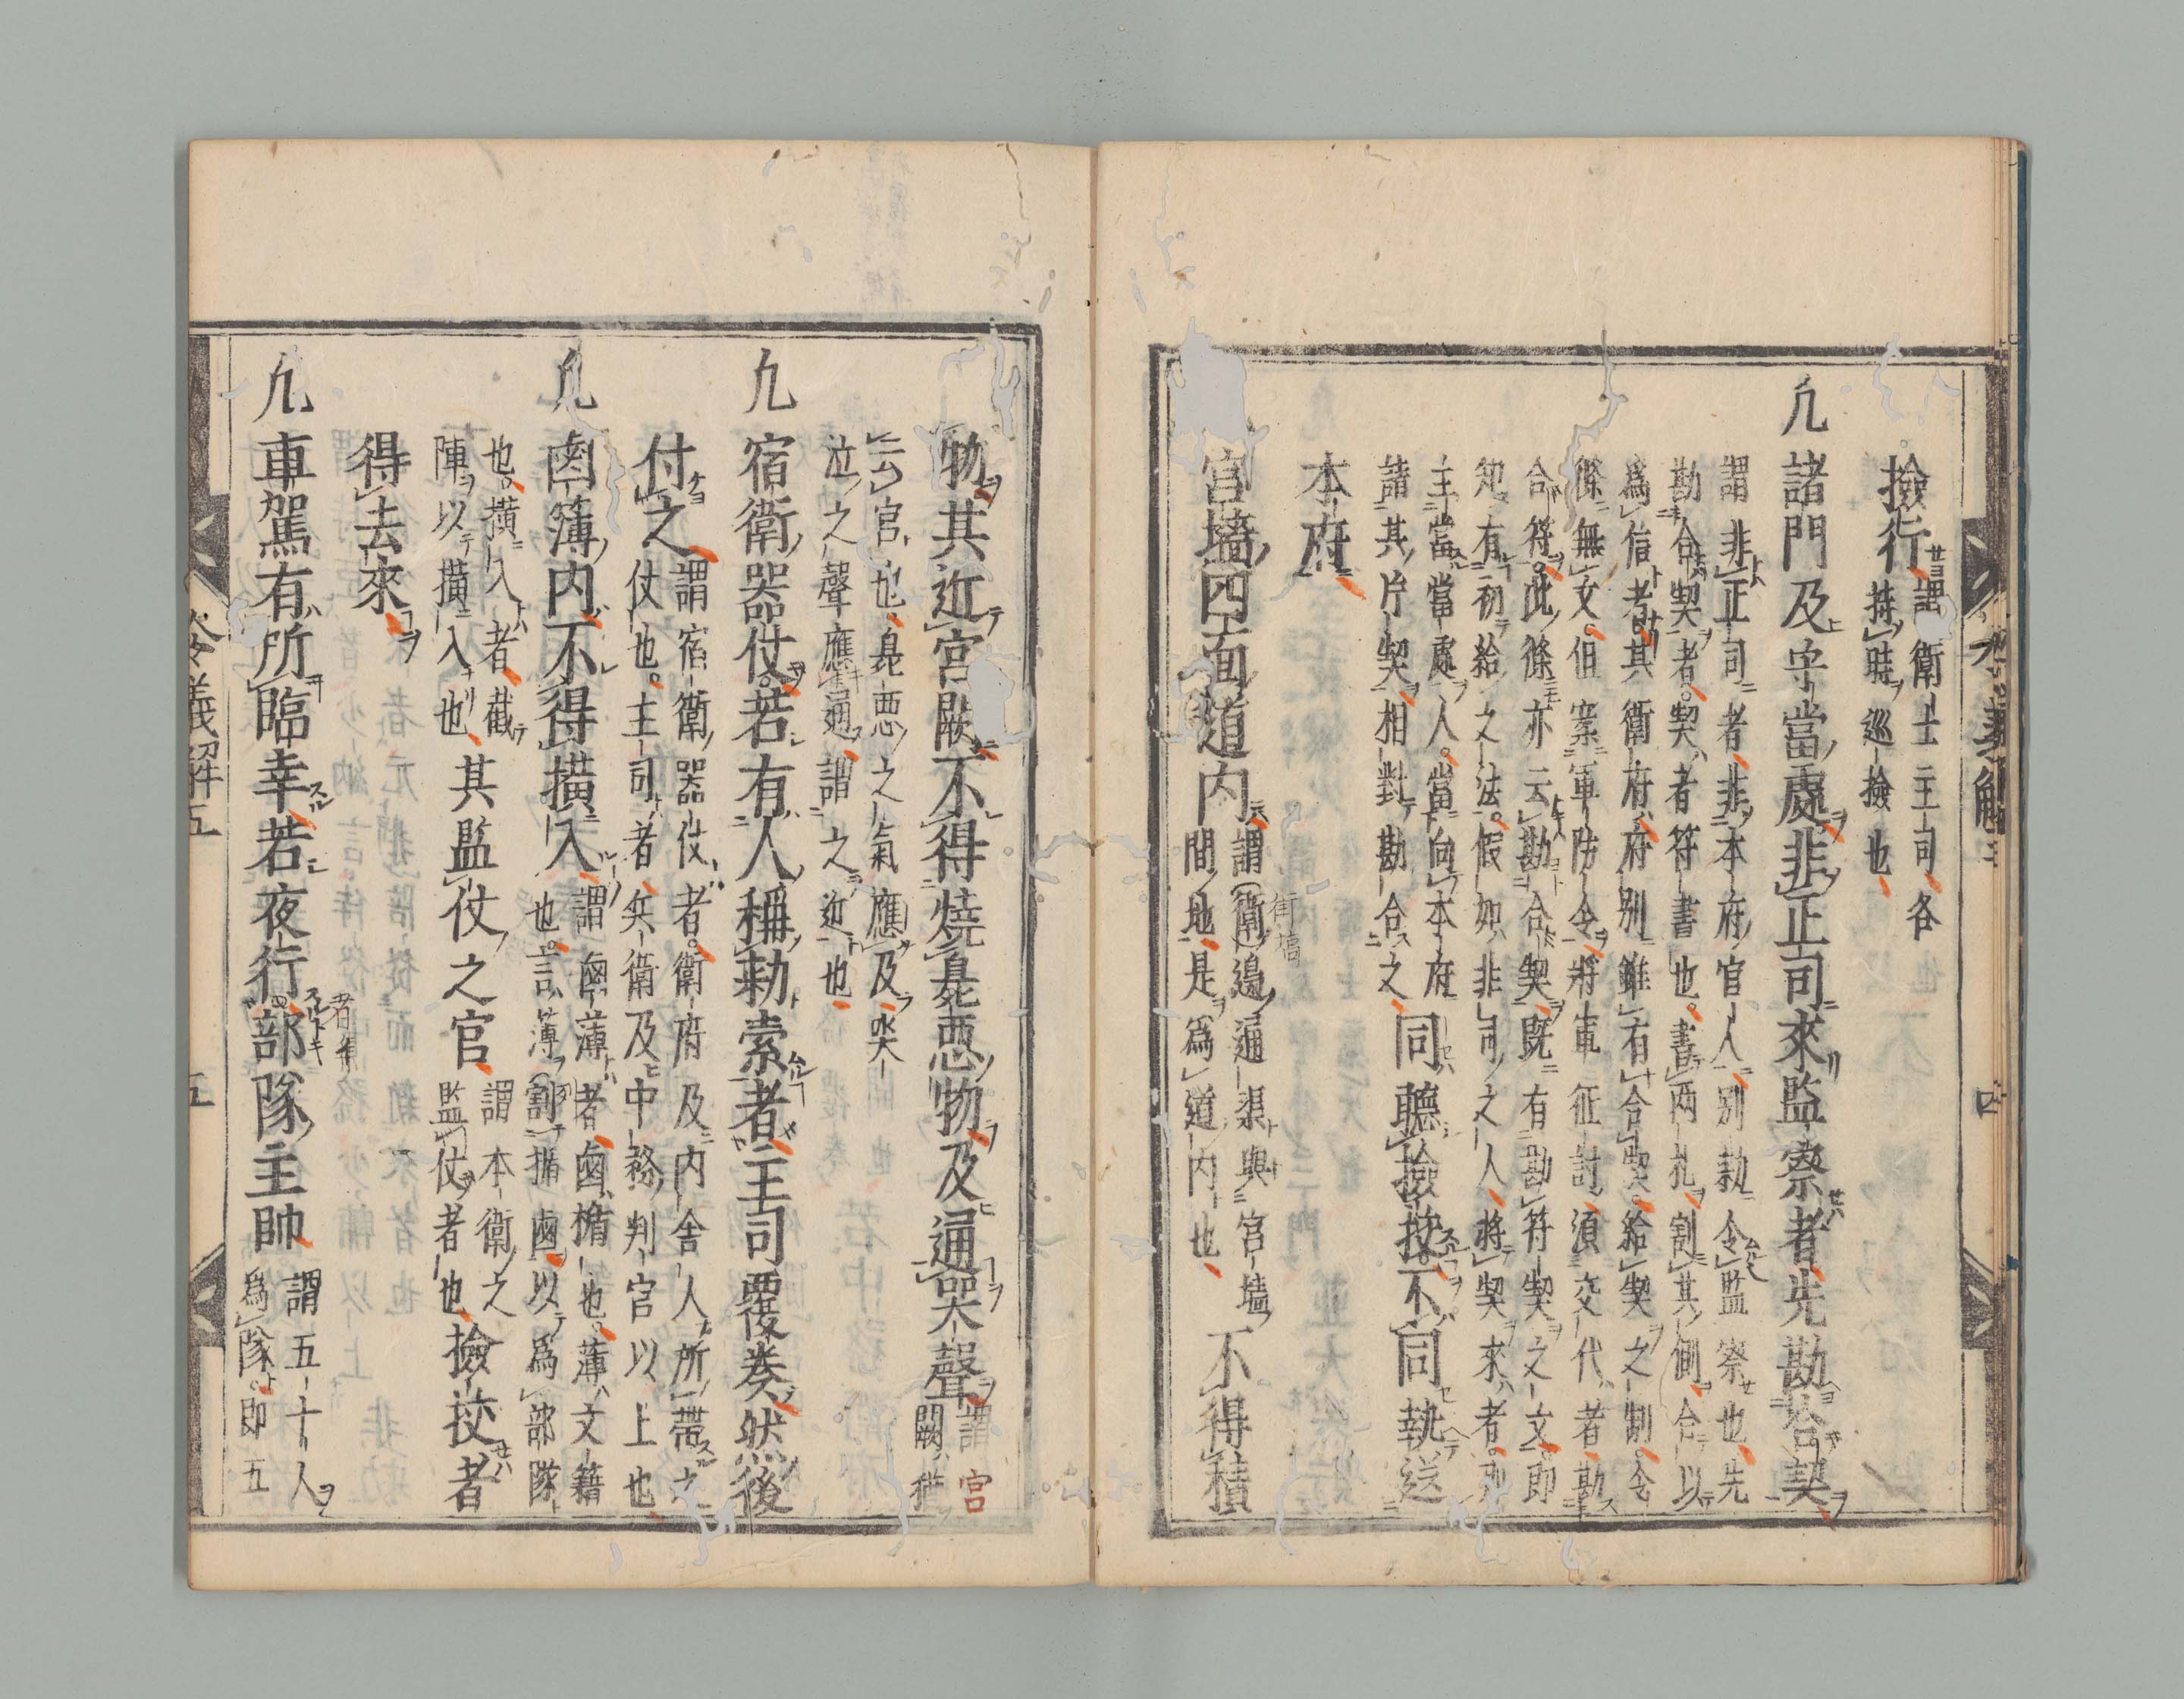 撿行謂衛士主司各
持時巡撿也
凢諸門及守當處非正司來監察者先勘合契
謂非正司者非本府官人別勅令監察也先
勘合契者契者符書也書兩札割其側合以
爲信者其衛府府別雖有合契給契之制令
條無文但案軍防令將軍征討須交代者勘
合符此條亦云勘合契既有勘符契之文即
知有初給之法假如非司之人將契來者
主當當處人當向本府
諸其片契相對勘合之同聽撿挍不同執送
本府
宮墻四面道内謂衛邊通渠與宮墻
間地是爲道内也不得積
街墻
物其近宮闕不得燒臭惡物及通哭聲謂宮
闕猶
云宮也臭惡之氣應及哭
泣之聲應通謂之近也
凢宿衛器仗若有人稱勅索者主司覆奏然後
付之謂宿衛器仗者衛府及内舍人所帶之
仗也主司者兵衛及中務判官以上也
凢鹵簿内不得横入謂鹵薄者鹵楯也薄文籍
也言薄割楯鹵以爲部隊
也横入者截
陣以横入也其監仗之官謂本衛之
監仗者也撿挍者
得去來
凢車駕有所臨幸若夜行部隊主帥謂五十人
爲隊即五
令義解五
五